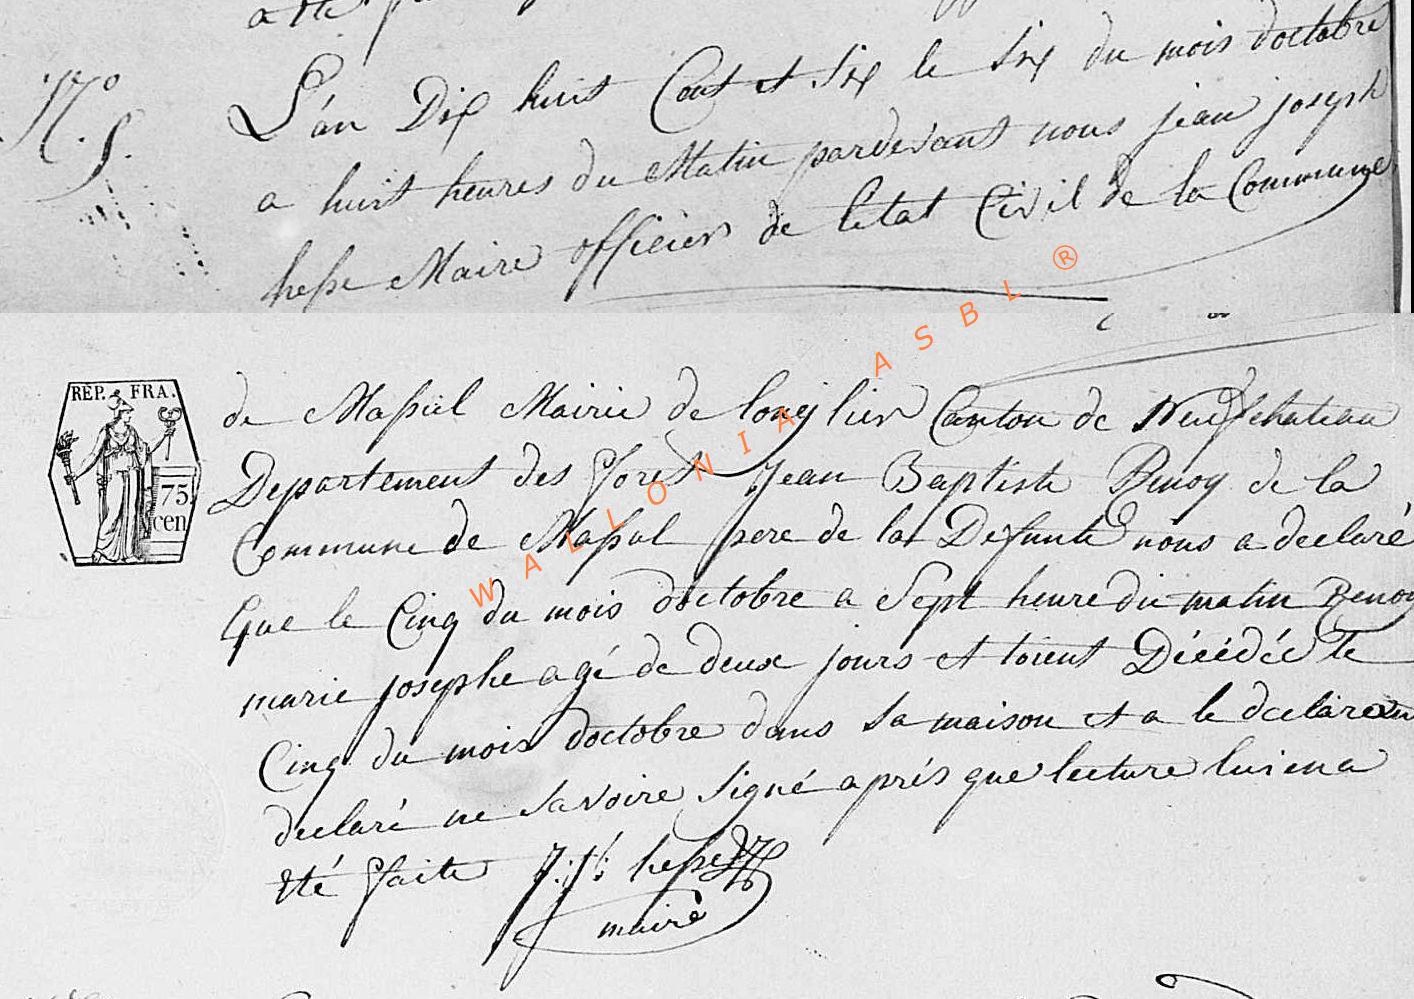 a été
N.º 5.
L'an Dix huit Cent et Six le Six du mois doctobre
a huit heures du Matin pardevant nous jean joseph
hesse Maire officier de letat Civil de la Commune
RÉP. FRA.
75
cen
de Massul Mairie de longlier Canton de Neufchateau
Departement des forest Jean Baptiste Benoy de la
Commune de Massul pere de la Defunte nous a declaré
Que le Cinq du mois doctobre a Sept heure du matin Benoy
marie josephe agé de deux jours et toient Décédée le
Cinq du mois doctobre dans sa maison et a le declaren
declaré ne savoire signé aprés que lecture lui ena
été faite J: J: hesse
maire
WALLONIA ASBL ®